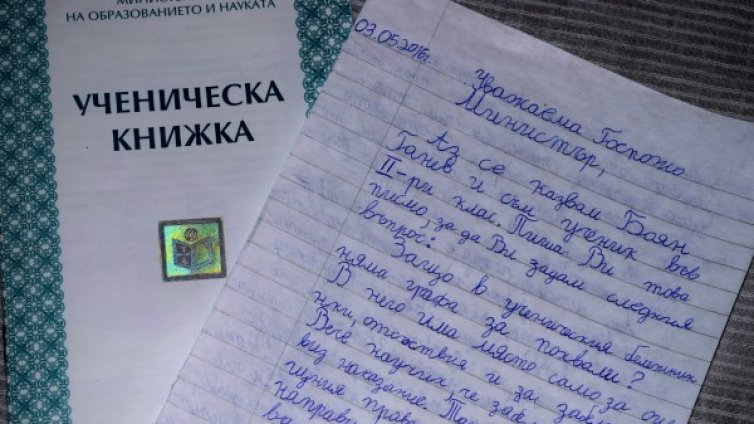 НА ОБРАЗОВАНИЕТО И НАУКАТА
УЧЕНИЧЕСКА
КНИЖКА
03.05.2016г.
Уважаема Госпожо
Министър,
Аз се казвам Боян
Ганев и съм ученик във
II-ри клас. Пиша Ви това
писмо, за да Ви задам следния
въпрос:
Защо в ученическия бележник
няма графа за похвали?
В него има място само за оце
нки, отсъствия и за забе
Вече научих, че заб
вид наказание. Та
щудния прав
направ
ва